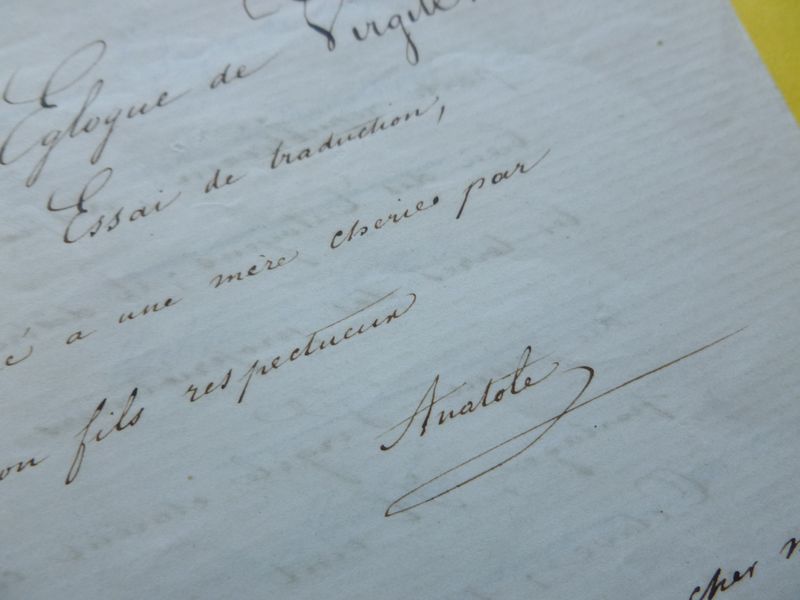 Eglogue de Virgile
Essai de traduction,
é a une mère cherie par
on fils respectueux
Anatole
cher